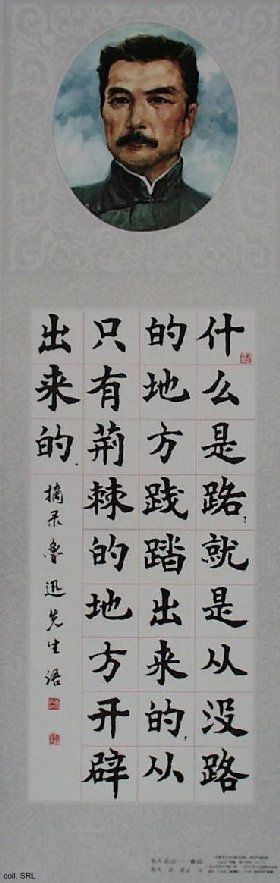 什么是路？就是从没路
的地方践踏出来的，从
只有荆棘的地方开辟
出来的。
摘录鲁迅先生语
coll. SRL